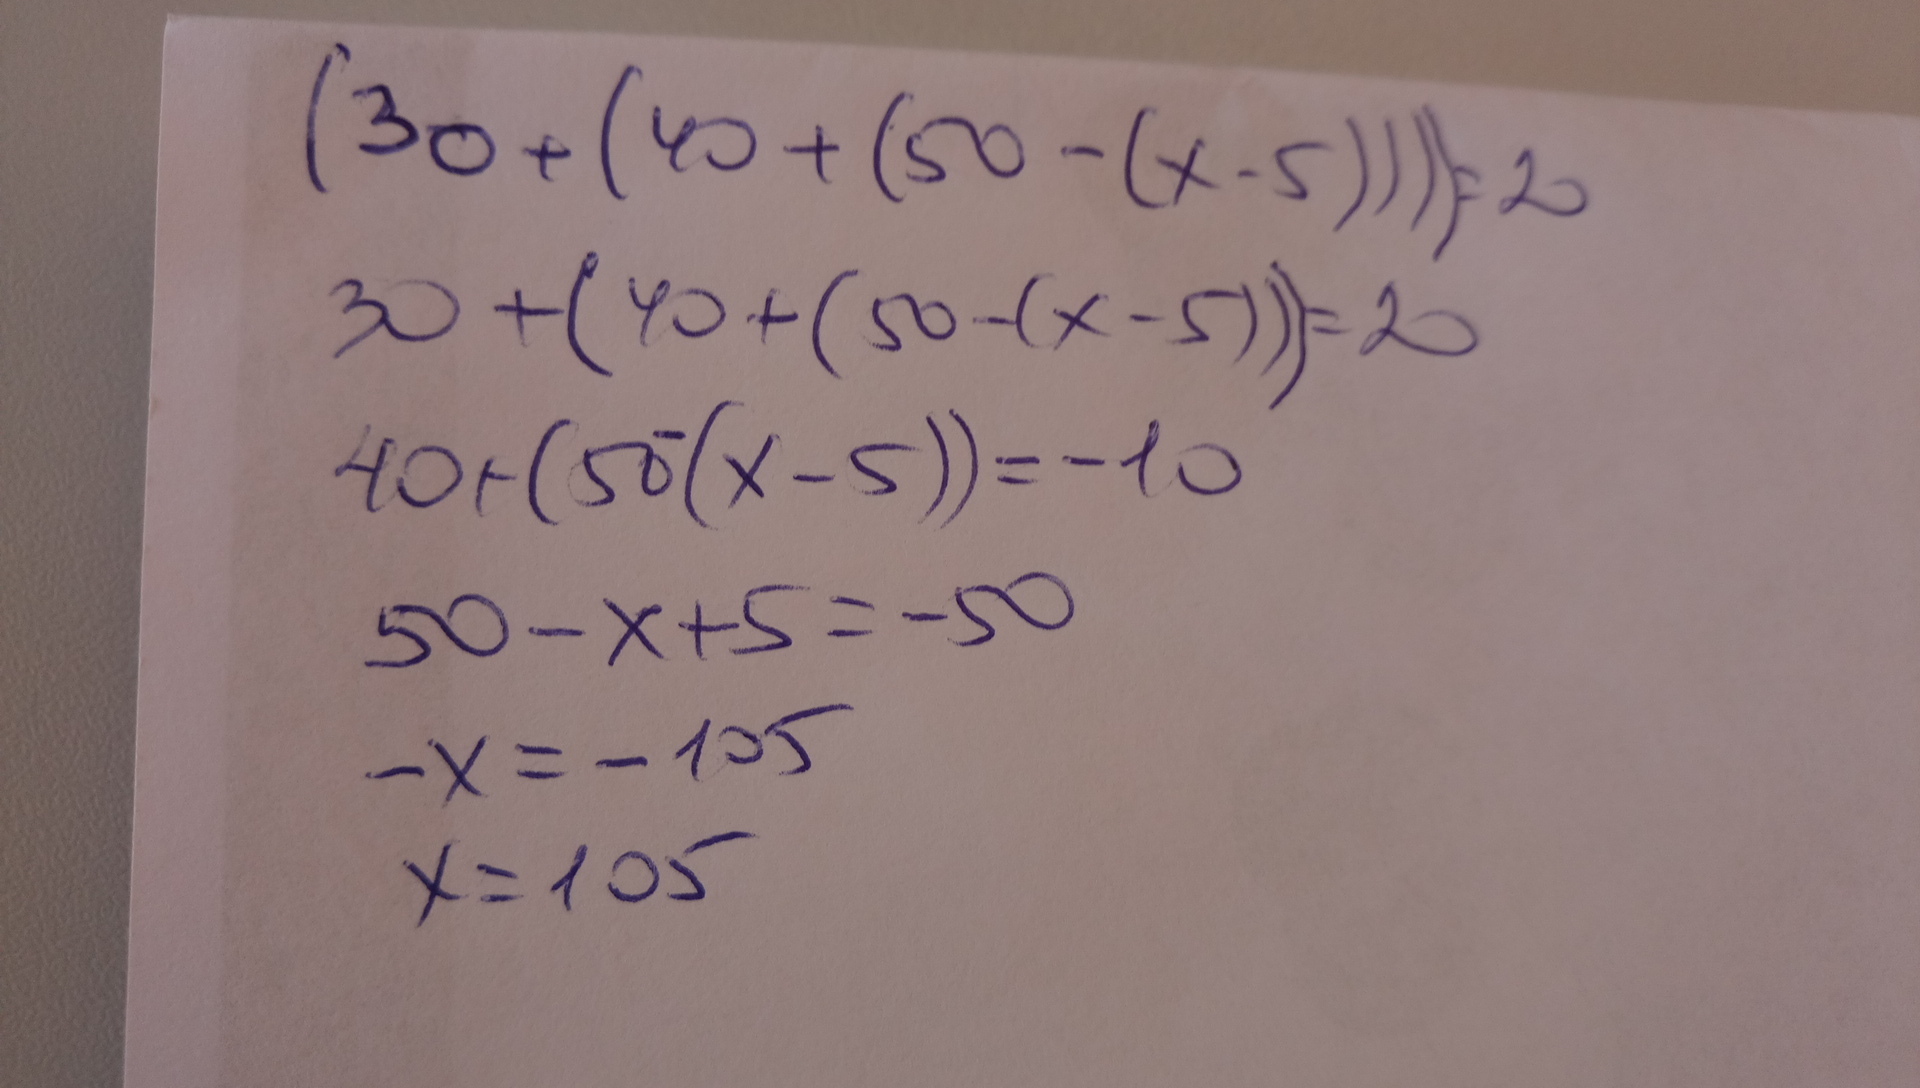 (30+(40+(50-(x-5))))=20
30+(40+(50-(x-5)))=20
40+(50-(x-5))=-10
50-x+5=-50
-x=-105
x=105